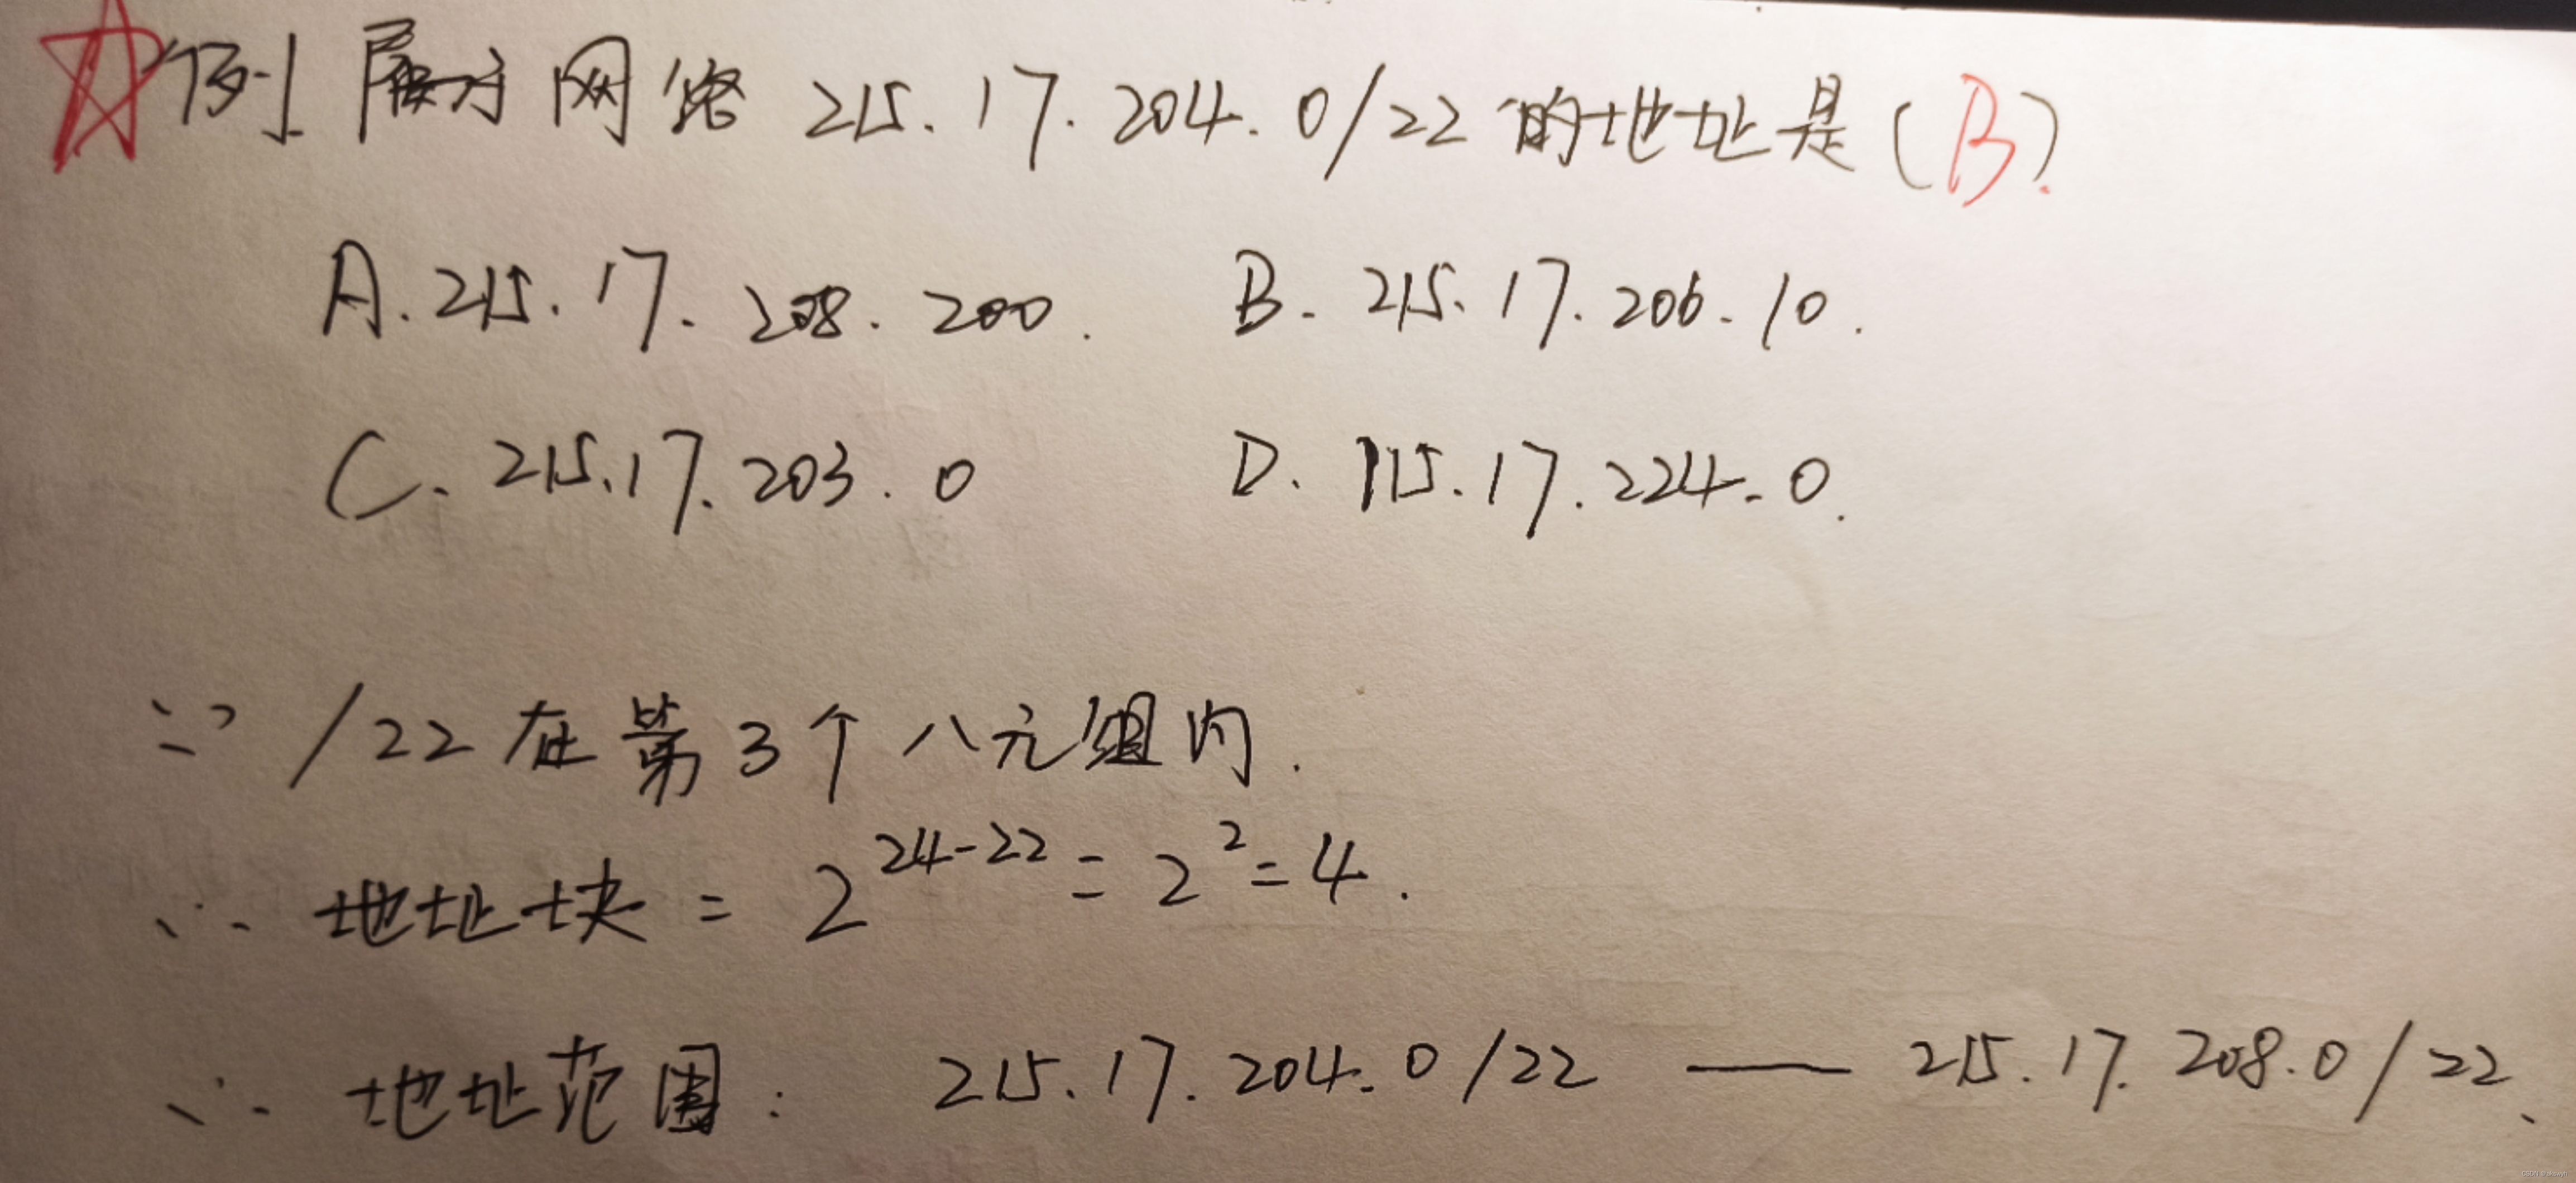 例 属于网络 215.17.204.0/22 的地址是(B).
A. 215.17.208.200. B. 215.17.206.10.
C. 215.17.203.0 D. 115.17.224.0.
∵ /22 在第3个八元组内.
∴ 地址块 = 2^24-22 = 2^2 = 4.
∴ 地址范围: 215.17.204.0/22 —— 215.17.208.0/22.